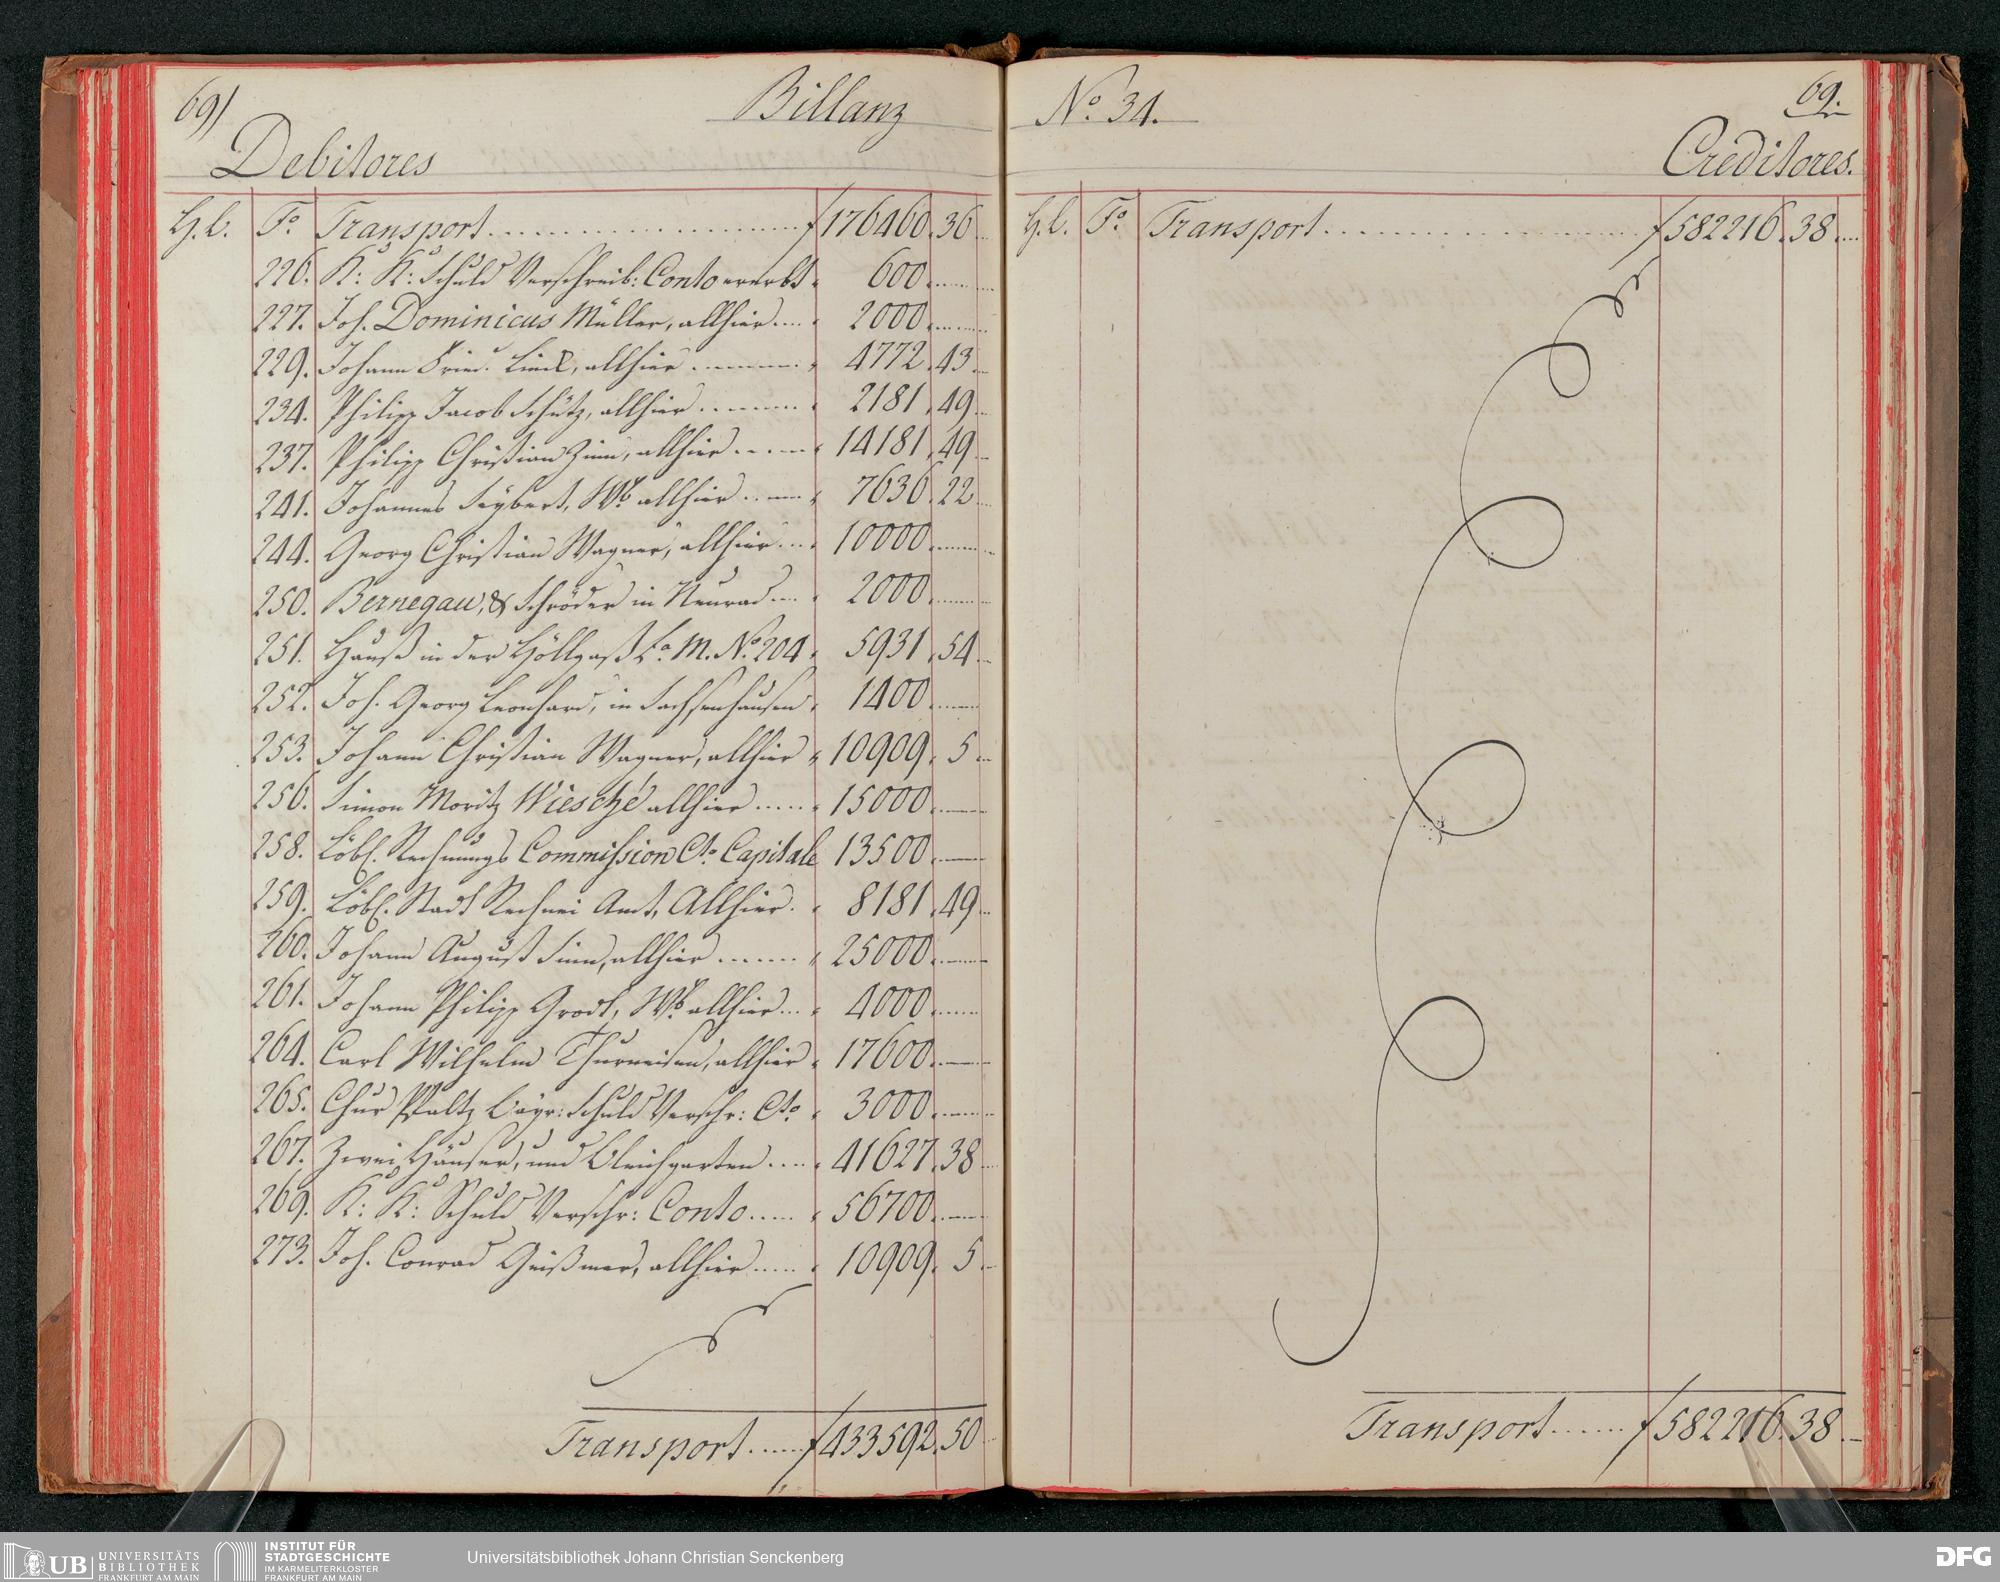 69)
Billanz
Debitores
H.b. Fo. Transport f 176460.36
226. K: K: Schuld Verschreib: Conto ererbt 600.
227. Joh. Dominicus Müller, allhier 2000.
229. Johann Fried. Lindt, allhier 4772.43
234. Philipp Jacob Schütz, allhier 2181.49
237. Philipp Christian Zinn, allhier 14181.49
241. Johannes Seybert, Wb. allhier 7636.22
244. Georg Christian Wagner, allhier 10000.
250. Bernegau, & Schröder in Neurad 2000.
251. Hauß in der Höllgaß La. M. No. 204 5931.54
252. Joh. Georg Leonhard, in Sachsenhausen 1400.
253. Johann Christian Wagner, allhier 10909.5
256. Simon Moritz Wiesché allhier 15000.
258. Löbl. Rechnungs Commission Cto. Capitale 13500.
259. Löbl. Stadt Rechnei Amt, Allhier. 8181.49
260. Johann August Sinn, allhier 25000.
261. Johann Philipp Grodt, Wb. allhier 4000.
264. Carl Wilhelm Thurneisen, allhier 17600.
265. Chur Pfaltz Bayr: Schuld Verschr: Cto. 3000.
267. Zwei Häuser, und Bleichgarten 41627.38
269. K: K: Schuld Verschr: Conto 56700.
273. Joh. Conrad Geißmer, allhier 10909.5
Transport f 433592.50
No. 34.
69.
Creditores.
H.b. Fo. Transport f 582216.38
Transport f 582216.38
UB UNIVERSITÄTS
BIBLIOTHEK
FRANKFURT AM MAIN
INSTITUT FÜR
STADTGESCHICHTE
IM KARMELITERKLOSTER
FRANKFURT AM MAIN
Universitätsbibliothek Johann Christian Senckenberg
DFG